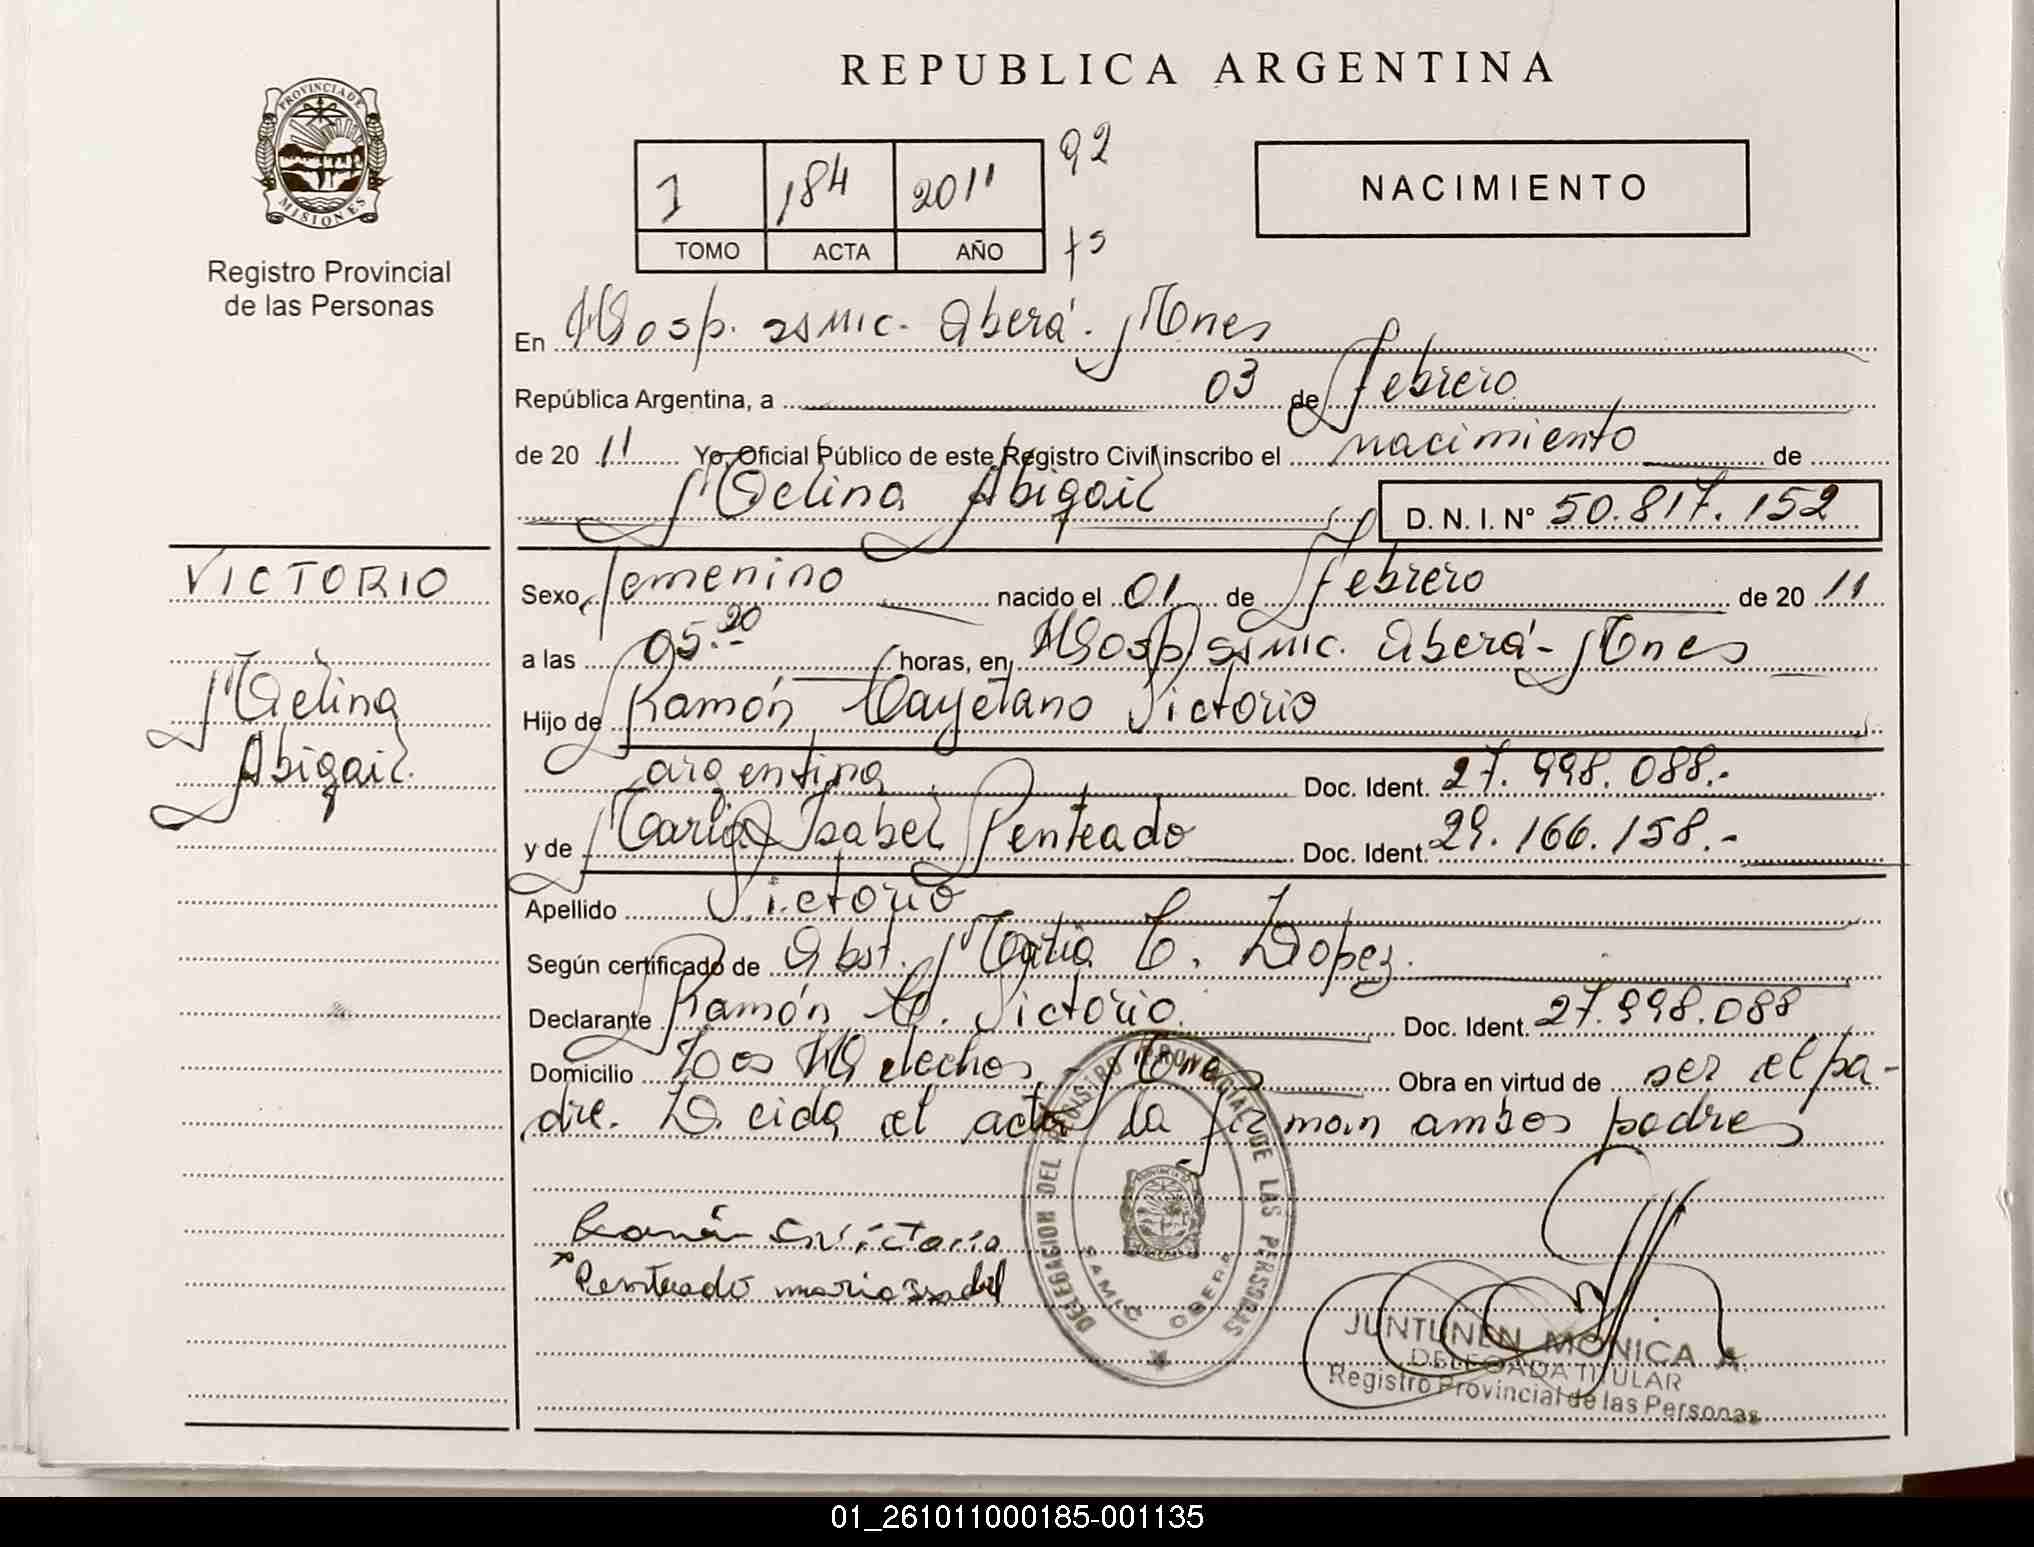 REPUBLICA ARGENTINA
PROVINCIA DE MISIONES
Registro Provincial
de las Personas
1 184 2011 92
TOMO ACTA AÑO fs
NACIMIENTO
En Hosp. samic. Oberá. Mnes
República Argentina, a 03 de Febrero
de 20 11 Yo, Oficial Público de este Registro Civil inscribo el nacimiento de
Melina Abigail D. N. I. N° 50.817.152
VICTORIO
Melina
Abigail.
Sexo femenino nacido el 01 de Febrero de 20 11
a las 05.20 horas, en Hosp samic. Oberá - Mnes
Hijo de Ramón Cayetano Victorio
argentina Doc. Ident. 27.998.088.-
y de Maria Isabel Penteado Doc. Ident. 29.166.158.-
Apellido Victorio
Según certificado de Obst. Maria C. Lopez.
Declarante Ramón C. Victorio. Doc. Ident. 27.998.088
Domicilio Los Helechos - Mnes Obra en virtud de ser el pa-
dre. Leida el acta la firman ambos padres
Ramón C Victorio
Penteado maria Isabel
DELEGACION DEL REGISTRO PROVINCIAL DE LAS PERSONAS
SAMIC OBERA
JUNTUNEN MONICA A.
DELEGADA TITULAR
Registro Provincial de las Personas
01_261011000185-001135